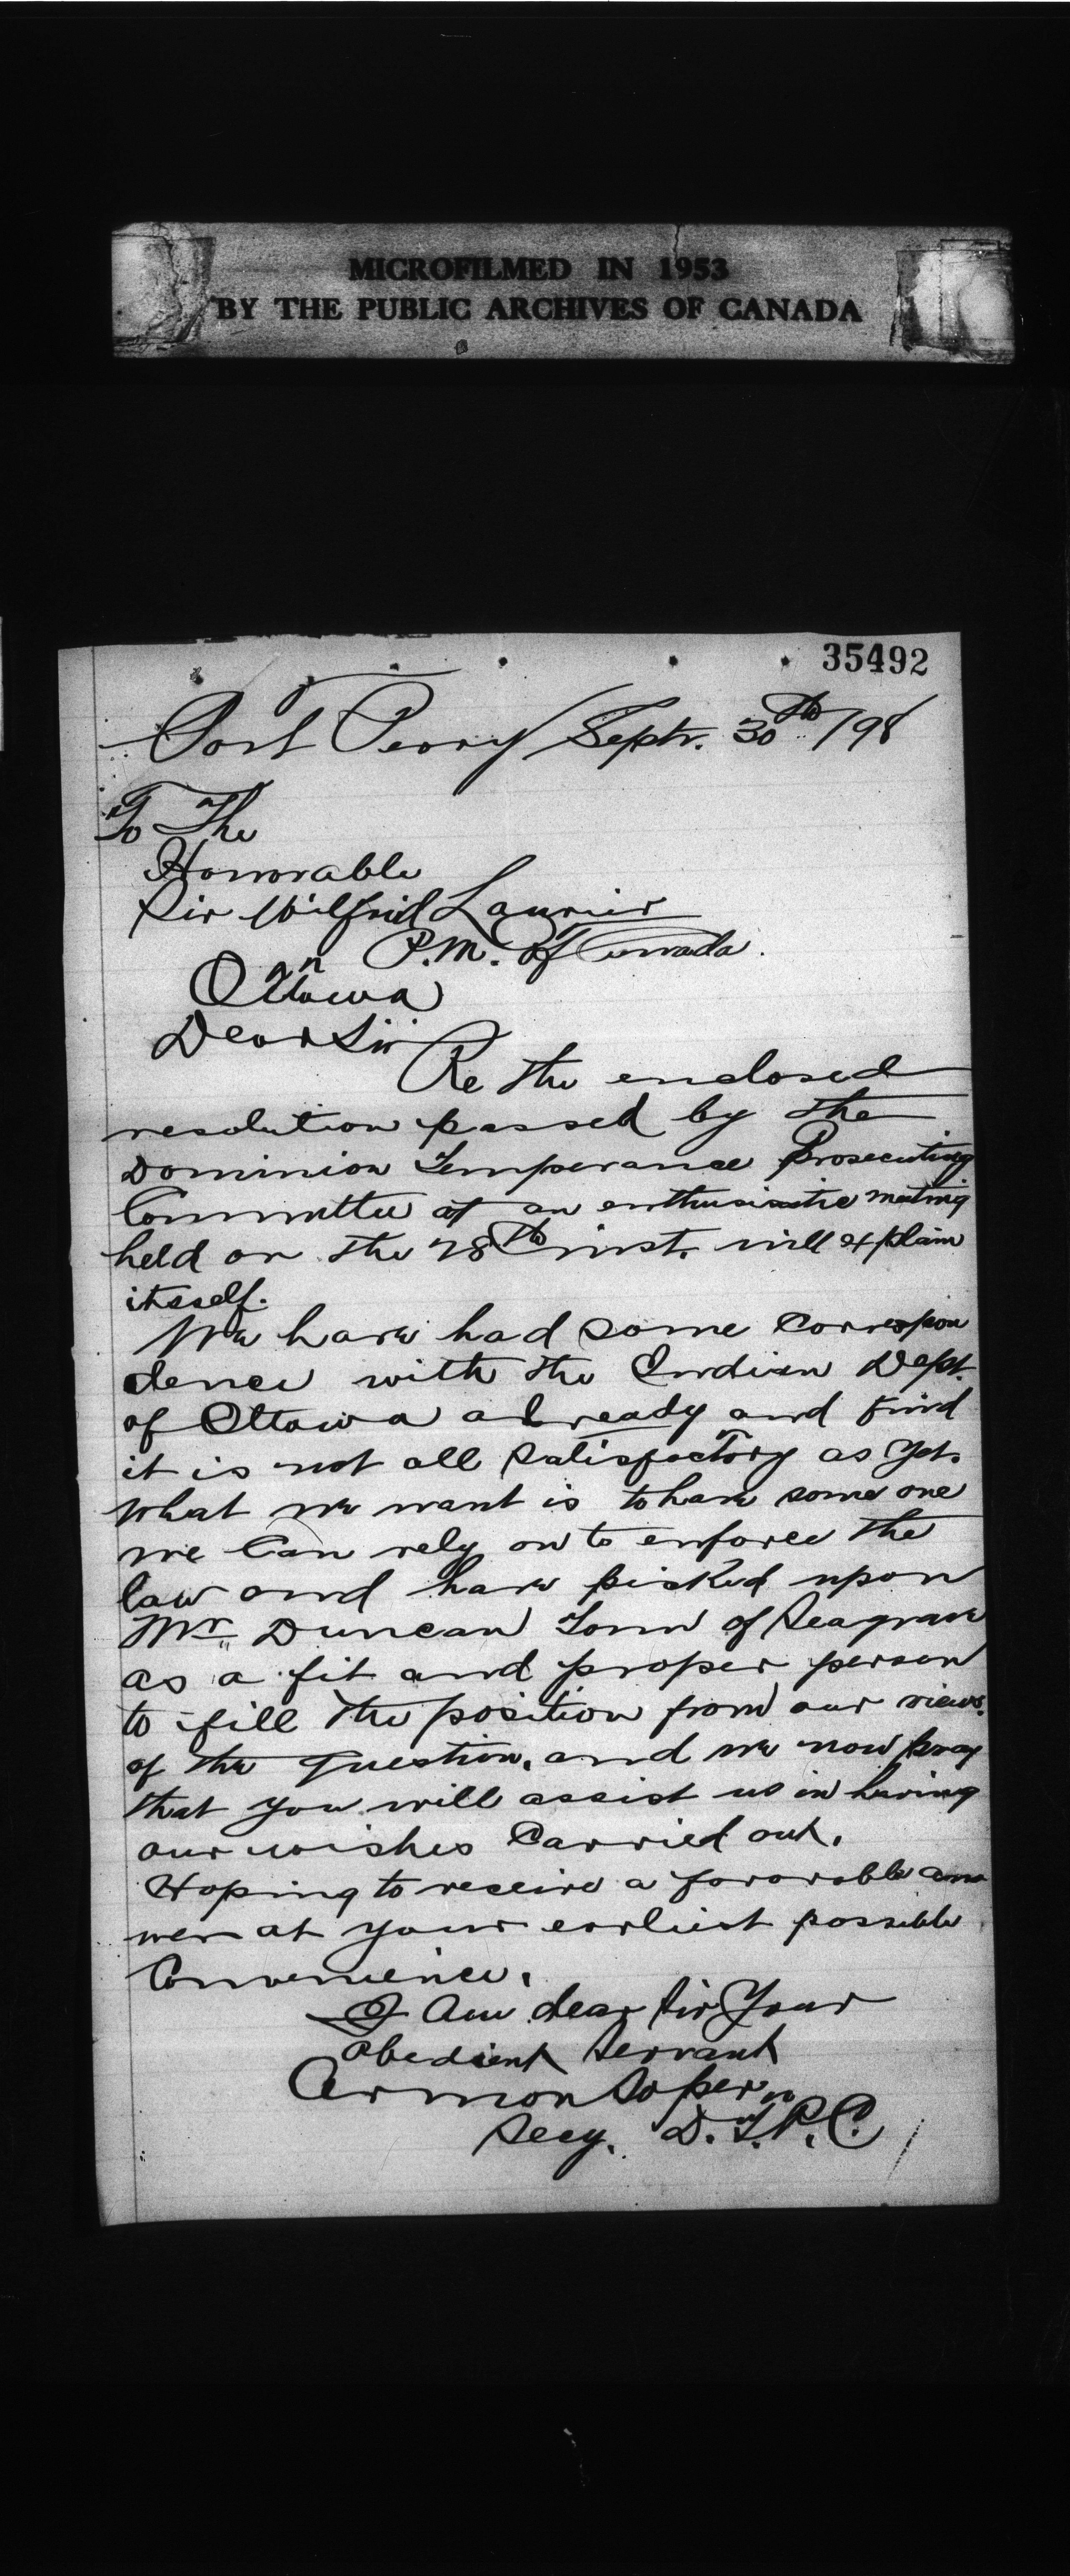 MICROFILMED IN 1953
BY THE PUBLIC ARCHIVES OF CANADA
35492
Port Perry Septr. 30th /98
To The
Honorable
Sir Wilfrid Laurier
P.M. of Canada.
Ottawa
Dear Sir
Re the enclosed
resolution passed by the
Dominion Temperance Prosecuting
Committee at an enthusiastic meeting
held on the 28th inst. will explain
itself.
We have had some correspon
dence with the Indian Dept.
of Ottawa already and find
it is not all satisfactory as yet.
What we want is to have some one
we can rely on to enforce the
law and have picked upon
Mr. Duncan of Seagrave
as a fit and proper person
to fill the position from our views
of the question, and we now pray
that you will assist us in having
our wishes Carried out.
Hoping to receive a favorable ans
wer at your earliest possible
Convenience,
I am dear Sir Your
Obedient Servant
Armon Soper
Secy. D.T.P.C.